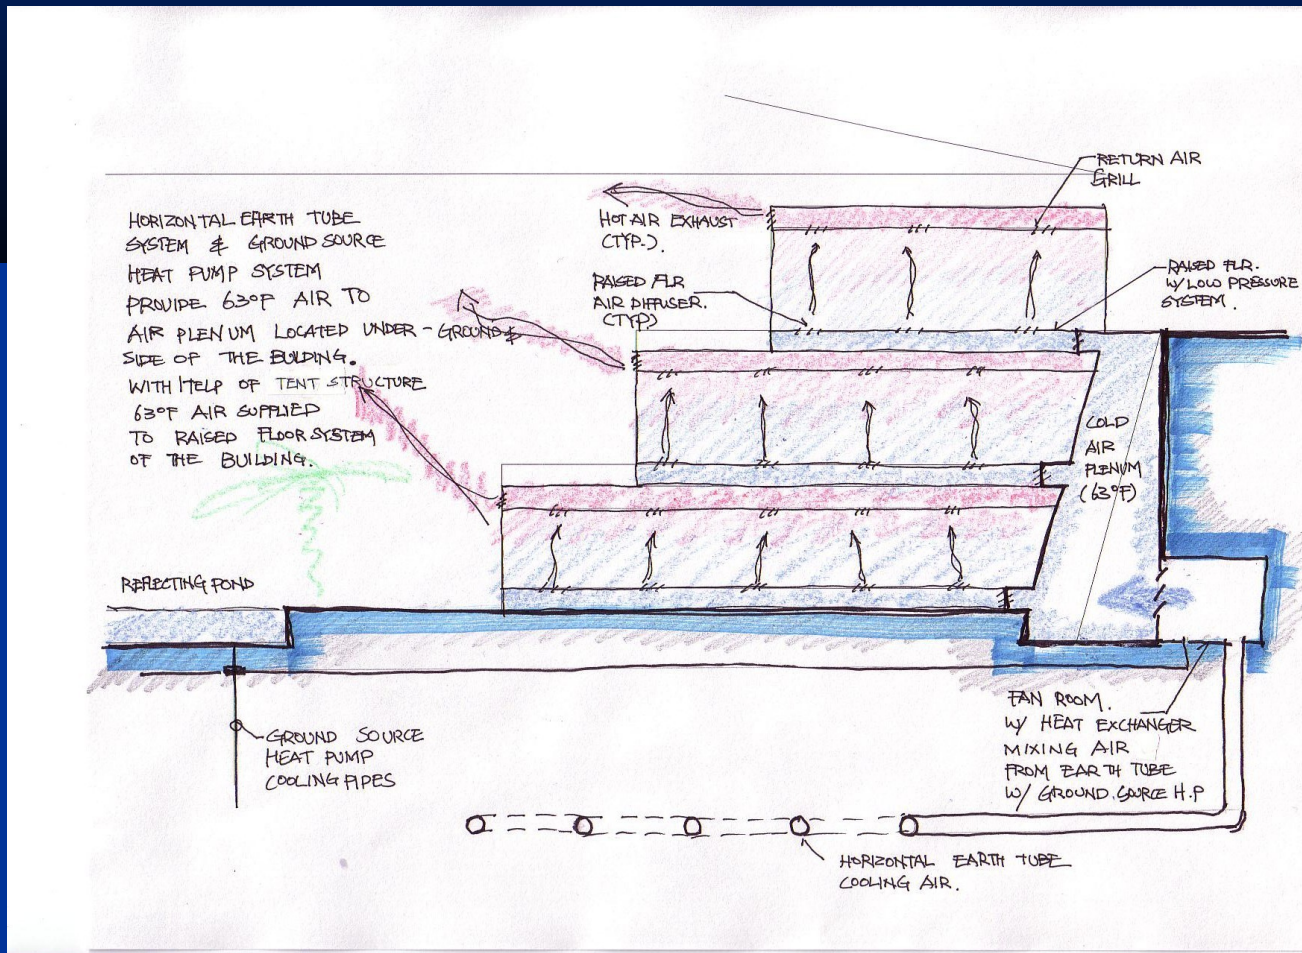 HORIZONTAL EARTH TUBE
SYSTEM & GROUND SOURCE
HEAT PUMP SYSTEM
PROVIDE 63°F AIR TO
AIR PLENUM LOCATED UNDER-GROUND &
SIDE OF THE BUILDING.
WITH HELP OF TENT STRUCTURE
63°F AIR SUPPLIED
TO RAISED FLOOR SYSTEM
OF THE BUILDING.
HOT AIR EXHAUST
(TYP.).
RETURN AIR
GRILL
RAISED FLR
AIR DIFFUSER.
(TYP)
RAISED FLR.
W/ LOW PRESSURE
SYSTEM.
COLD
AIR
PLENUM
(63°F)
REFLECTING POND
GROUND SOURCE
HEAT PUMP
COOLING PIPES
FAN ROOM.
W/ HEAT EXCHANGER
MIXING AIR
FROM EARTH TUBE
W/ GROUND.SOURCE H.P
HORIZONTAL EARTH TUBE
COOLING AIR.